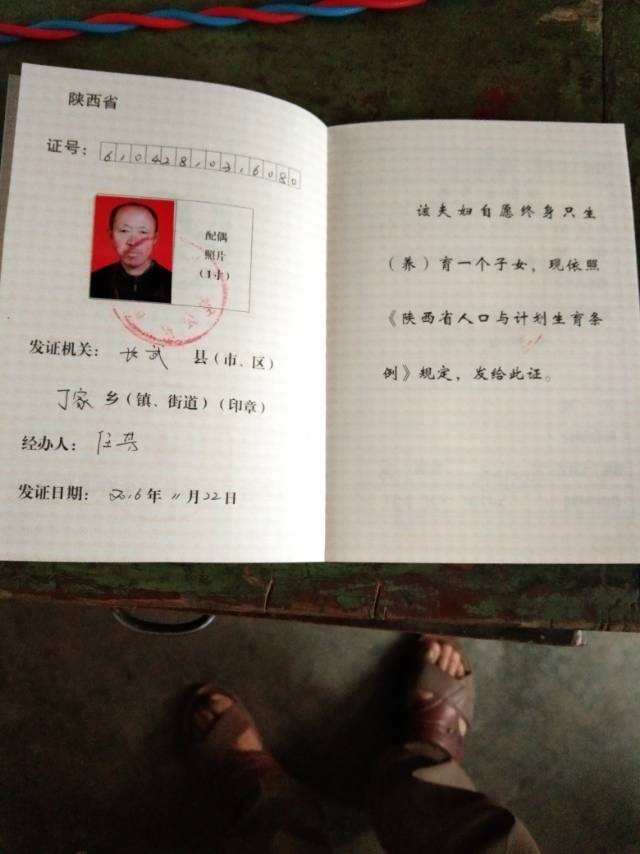 陕西省
证号：6104281021６080
配偶
照片
（1寸）
发证机关：长武 县（市、区）
丁家 乡（镇、街道）（印章）
经办人：任
发证日期：2016年11月22日
该夫妇自愿终身只生
（养）育一个子女，现依照
《陕西省人口与计划生育条
例》规定，发给此证。